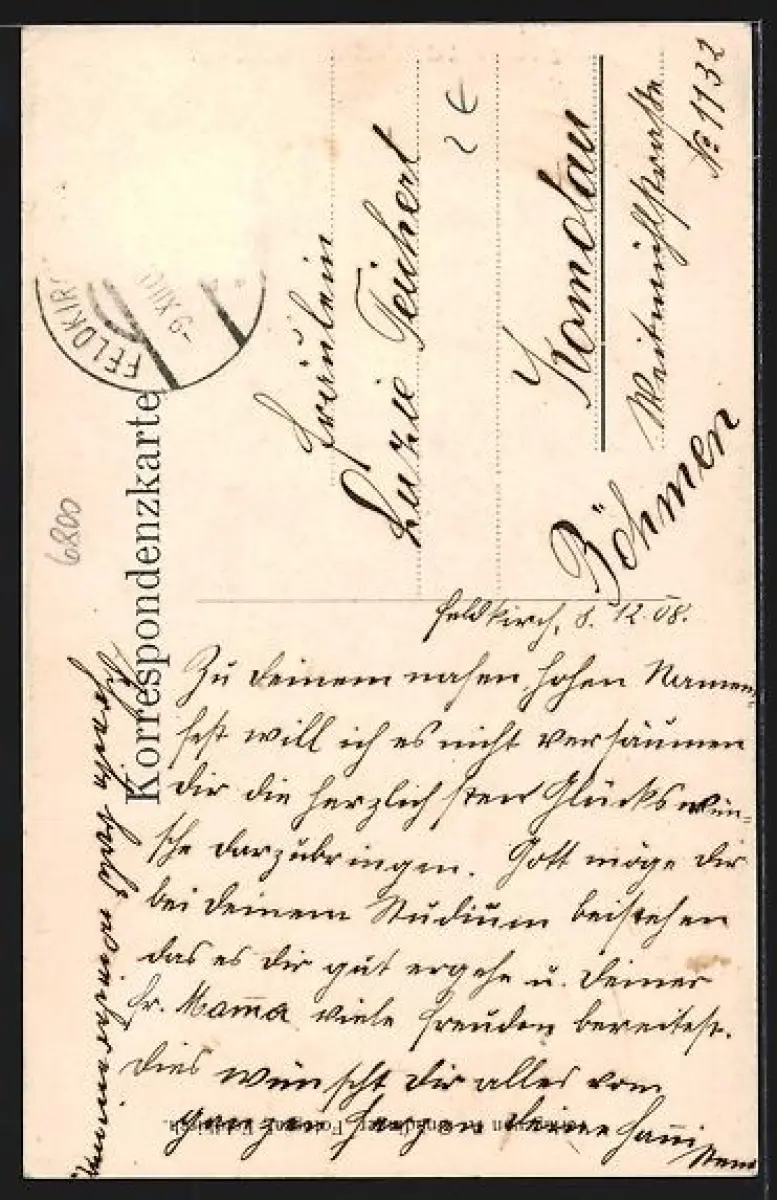 Korrespondenzkarte
FELDKIRC
-9.XII
6800
2 €
Fräulein
Luzie Teichert
Komotau
Weitmühlstrasse
№ 1132
Böhmen
Feldkirch, 8. 12. 08.
Zu deinem nahen, hohen Namens-
fest will ich es nicht versäumen
dir die herzlichsten Glückswün-
sche darzubringen. Gott möge dir
bei deinem Studium beistehen
das es dir gut ergehe u. deiner
Fr. Mama viele Freuden bereitest.
Dies wünscht dir alles vom
ganzen Herzen deine